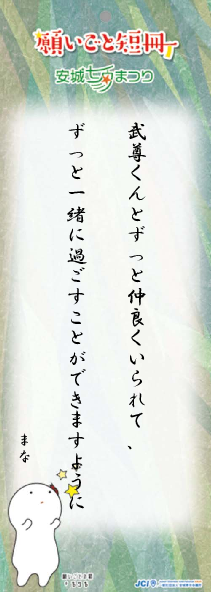 願いごと短冊
安城七夕まつり
武尊くんとずっと仲良くいられて、
ずっと一緒に過ごすことができますように
まな
JCI